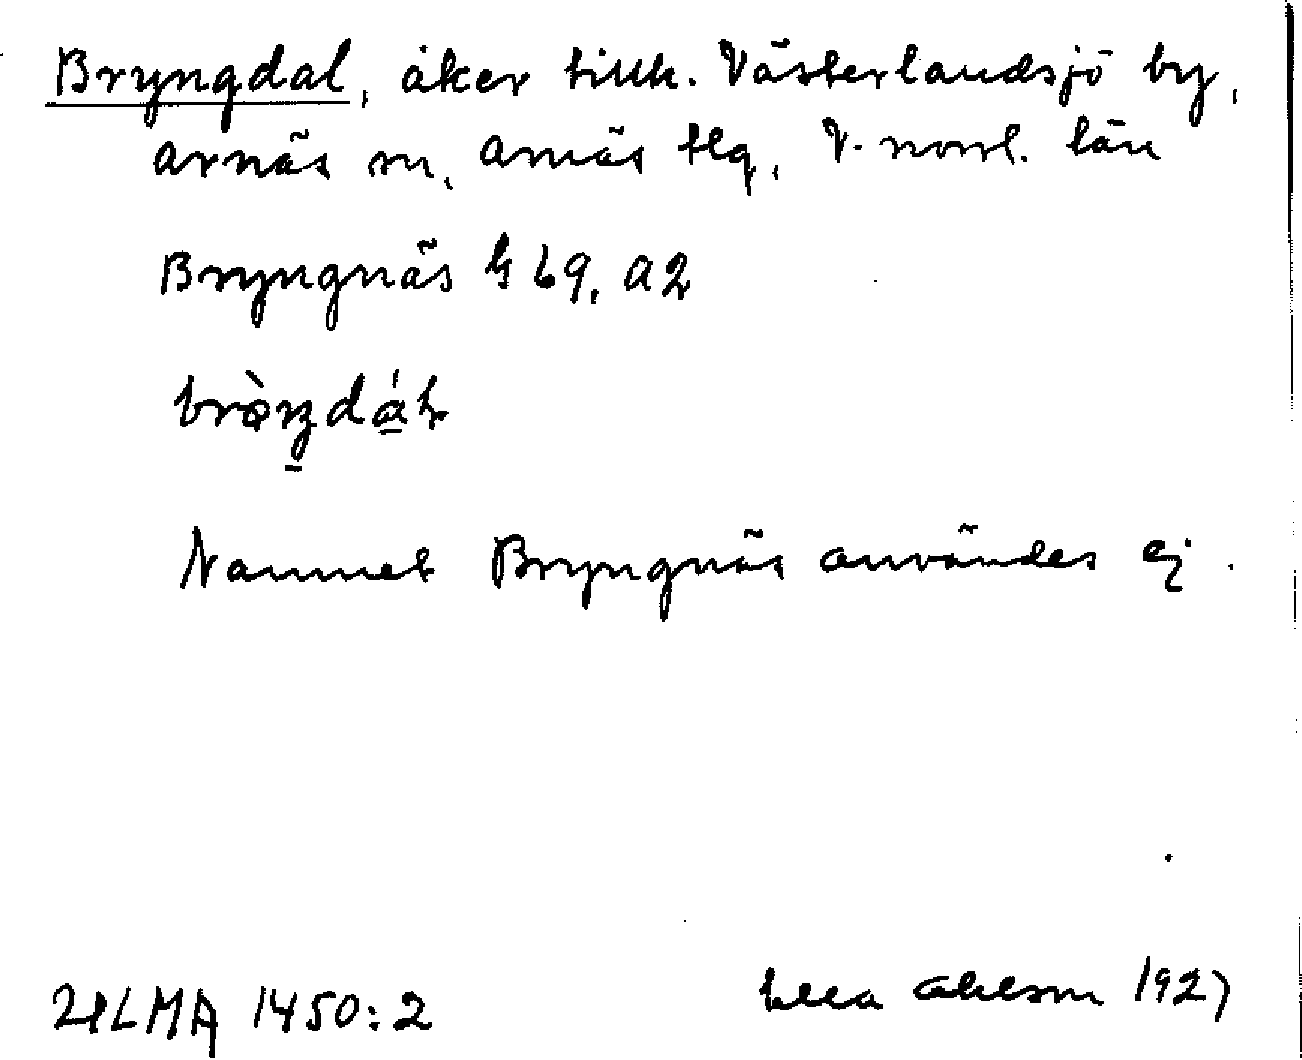 Bryngdal, åker tillh. Västerlandsjö by,
Arnäs sn, Arnäs tlg, V. norrl. län
Bryngnäs G 69, A2
Namnet Bryngnäs användes ej.
ULMA 1450:2
Ella Ohlson 1927